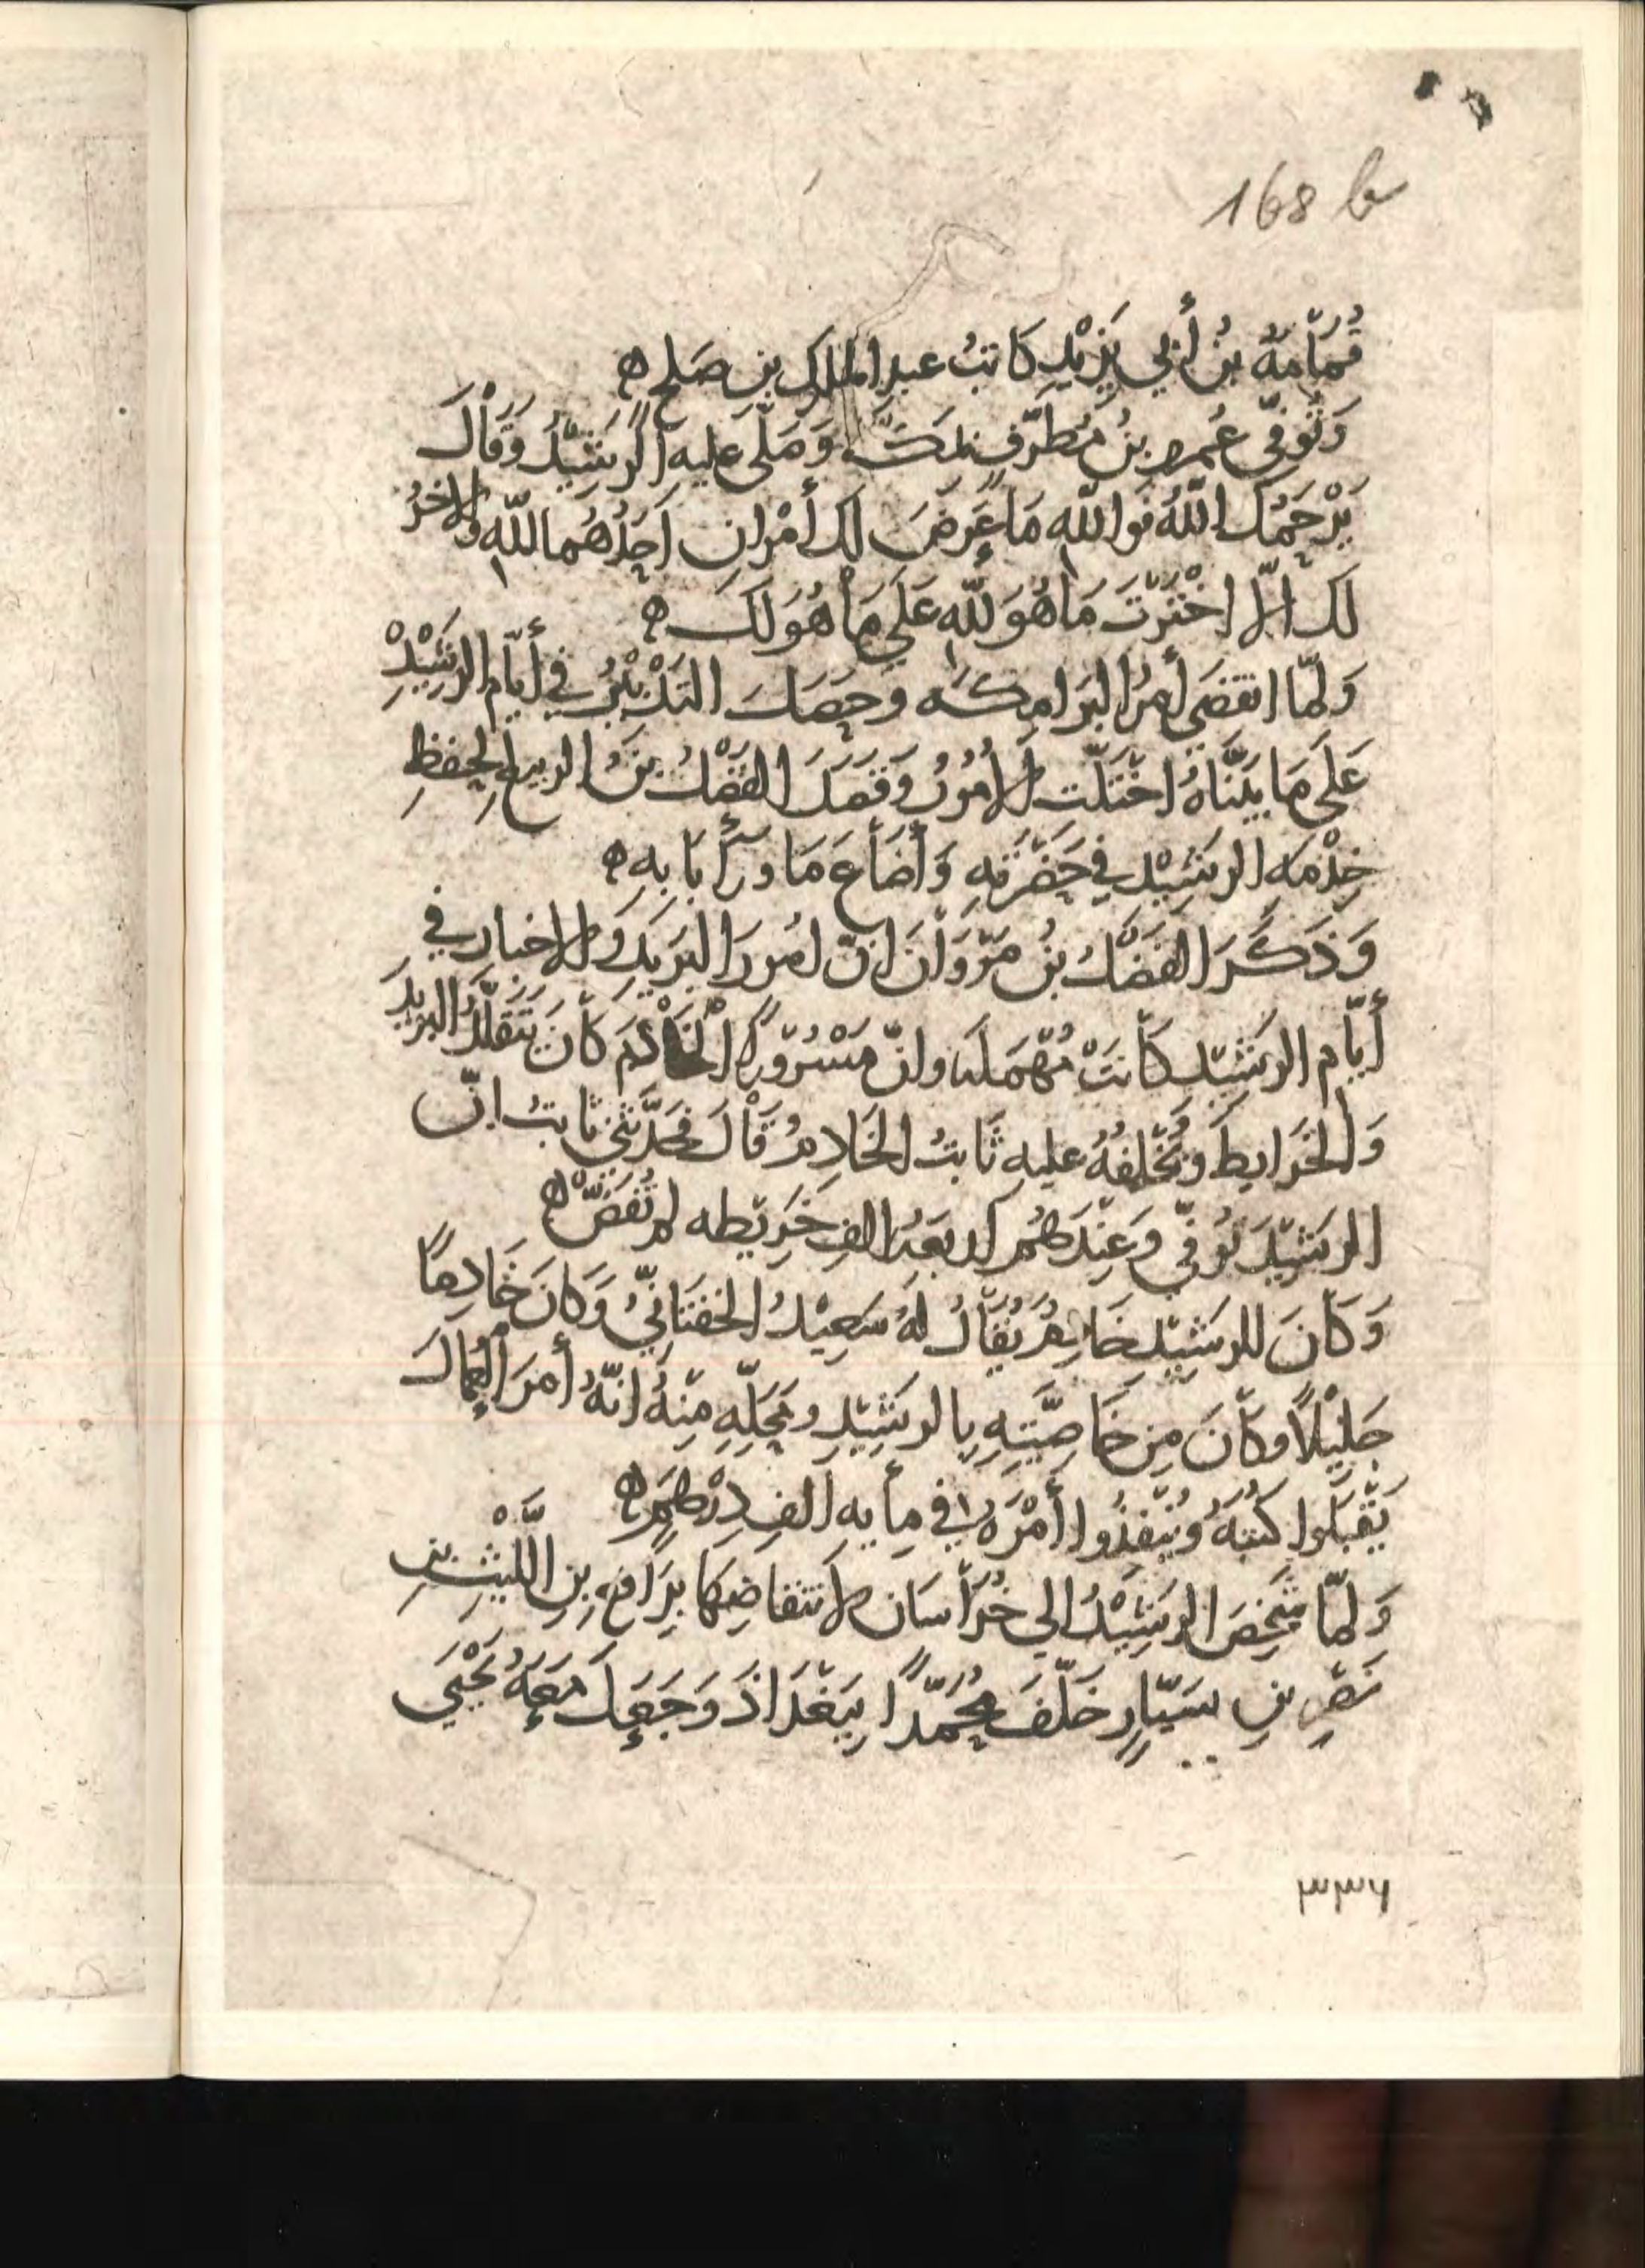 168 b
قُمَامَةُ بنُ أَبِي يَزِيْدٍ كَاتبُ عبدِ الملكِ بنِ صَلحٍ ه
وَتُوفّي عُمر بنُ مُطَرّف بمكَّةَ وَصَلّى عليهِ الرَشِيْدُ وَقَالَ
يَرْحَمُكَ اللّهُ فَوَاللّهِ مَا عَرَضَ لك أَمْرانِ اَحَدُهُما للّهِ والاخرُ
لَكَ الّا اخْتَرْتَ مَا هُوَ للّهِ عَلَى مَا هُوَ لَكَ ه
وَلمّا انقضَى أمرُ البَرَامِكَه وحَصَلَ التَدْبيْرُ في أيّام الرَشِيْدْ
عَلَى مَا بيَّنّاهُ اخْتَلّت الامُورُ وقصَدَ الفَضْلُ بنُ الربيعِ لحِفظِ
خِدْمَةِ الرشِيْدِ في حَضْرَتِهِ وَأَضَاعَ مَا ورآ بَابِهِ ه
وَذَكَرَ الفَضْلُ بنُ مَرْوَانَ انّ امُورَ البَريدِ والاخبار في
أَيّام الرشِيْدِ كَانتْ مُهْمَلَه وانّ مَسْرُوراً الخَادمَ كَانَ يَتَقلَّدُ البريدَ
وَالخَرَايطَ ويَخْلِفُهُ عليهِ ثَابتُ الخَادِمُ قَالَ فحدَّثني ثابتُ انّ
الرشِيْدَ تُوُفّي وَعِنْدَهُم أربعةُ الفِ خَرِيْطه لم تُفَضّ ه
وَكَانَ للرشِيْدِ خَادمٌ يُقَالُ لَهُ سَعِيْدُ الخفتَانيُّ وَكَانَ خَادِمًا
جَلِيْلاً وكَانَ مِن خَاصِّيَتِهِ بِالرشِيْدِ ومَحَلّهِ مِنهُ انّهُ أَمَرَ العُمالَ
يَقْبَلُوا كُتبَهُ ويُنفِذُوا أَمْرَهُ في مِأيهِ الفِ دِرْهَمٍ ه
وَلمّا شَخَصَ الرشِيْدُ الي خُرَاسَان لانتقاضِها بِرَافعِ بنِ اللَّيْثِ بنِ
نَصْرِ بنِ سَيّارٍ خَلّفَ مُحُمّداً بِبَغْدَاذَ وَجَعَلَ مَعَهُ يَحْيَى
٣٣٦